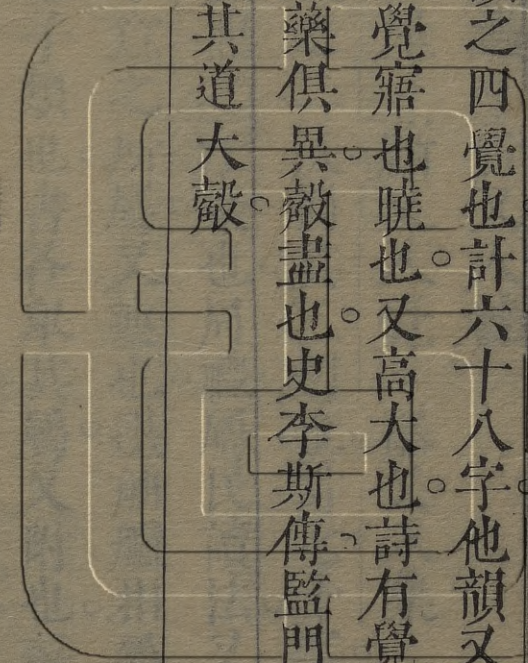 之四覺也計六十八字他韻又
覺寤也曉也。又高大也。詩有覺
藥俱異。觳盡也。史李斯傳監門
共道大觳。